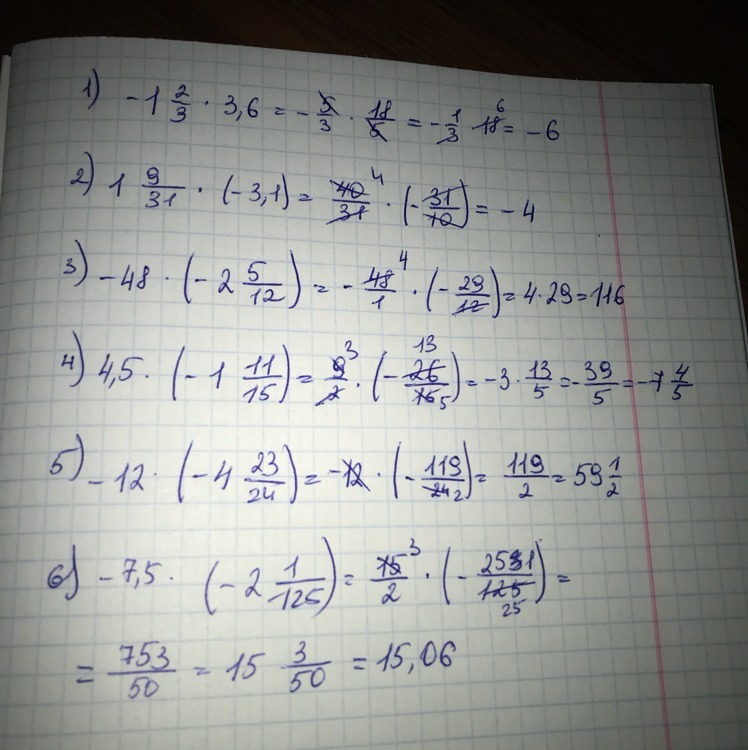 1) -1 2/3 · 3,6 = -5/3 · 18/5 = -1/3 · 18 6 = -6
2) 1 9/31 · (-3,1) = 40/31 4 · (-31/10) = -4
3) -48 · (-2 5/12) = -48/1 4 · (-29/12) = 4·29 = 116
4) 4,5 · (-1 11/15) = 9/2 3 · (-26/15 13 5) = -3 · 13/5 = -39/5 = -7 4/5
5) -12 · (-4 23/24) = -12 · (-119/24 2) = 119/2 = 59 1/2
6) -7,5 · (-2 1/125) = 15/2 3 · (-251/125 25) =
= 753/50 = 15 3/50 = 15,06